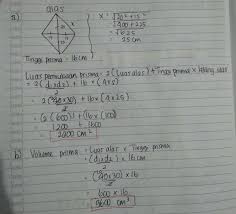 alas
a)
x = √20² + 15²
= √400 + 225
= √625
= 25 cm
Tinggi prisma = 16 cm
Luas permukaan prisma = 2 (Luas alas) + tinggi prisma x keliling alas
= 2 (d₁xd₂) + 16 x (4xs)
2
= 2 (40x30) + 16 x (4x25)
2
= 2 (600) + 16 x (100)
= 1200 + 1600
= 2800 cm²
b) Volume prisma = Luas alas x Tinggi prisma
= (d₁xd₂) x 16 cm
2
= (40x30) x 16
2
= 600 x 16
= 9600 cm³